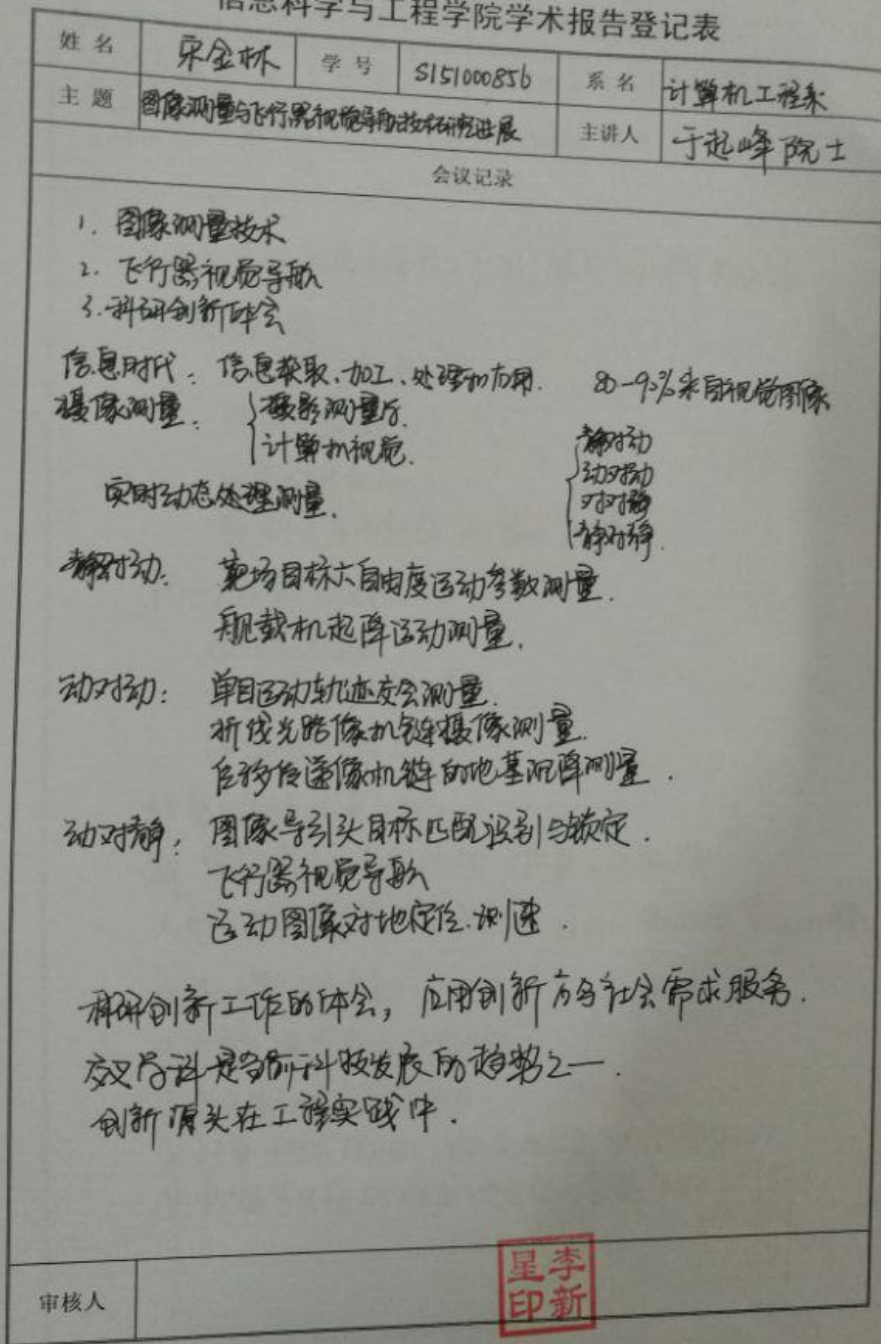 信息科学与工程学院学术报告登记表
姓名 宋金林 学号 S151000856 系名 计算机工程系
主题 图像测量与飞行器视觉导航技术研究进展 主讲人 于起峰院士
会议记录
1. 图像测量技术
2. 飞行器视觉导航
3. 科研创新体会
信息时代: 信息获取、加工、处理和应用. 80-90%来自视觉图像
摄像测量: 摄影测量学.
计算机视觉.
静对动
动对动
动对静
静对静.
实时动态处理测量.
静对动: 靶场目标六自由度运动参数测量.
舰载机起降运动测量.
动对动: 单目运动轨迹交会测量.
折线光路像机链摄像测量.
位移传递像机链的地基沉降测量.
动对静: 图像导引头目标匹配识别与锁定.
飞行器视觉导航
运动图像对地定位.测速.
科研创新工作的体会, 应用创新方为社会需求服务.
交叉学科是当前科技发展的趋势之一.
创新源头在工程实践中.
审核人
李新星印